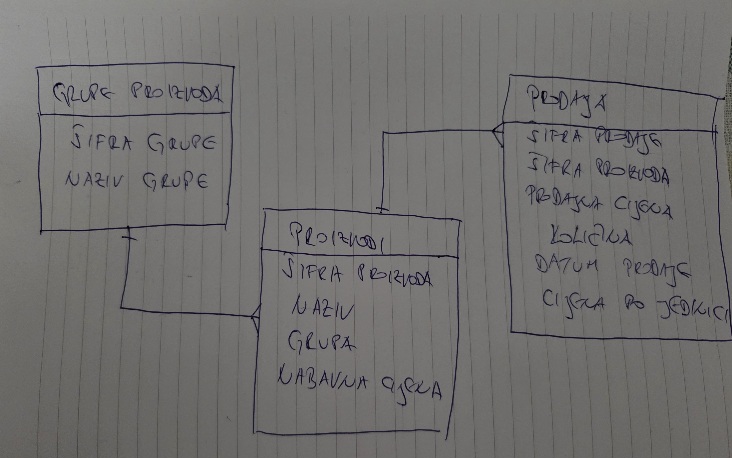 GRUPE PROIZVODA
ŠIFRA GRUPE
NAZIV GRUPE
PROIZVODI
ŠIFRA PROIZVODA
NAZIV
GRUPA
NABAVNA CIJENA
PRODAJA
ŠIFRA PRODAJE
ŠIFRA PROIZVODA
PRODAJNA CIJENA
KOLIČINA
DATUM PRODAJE
CIJENA PO JEDINICI